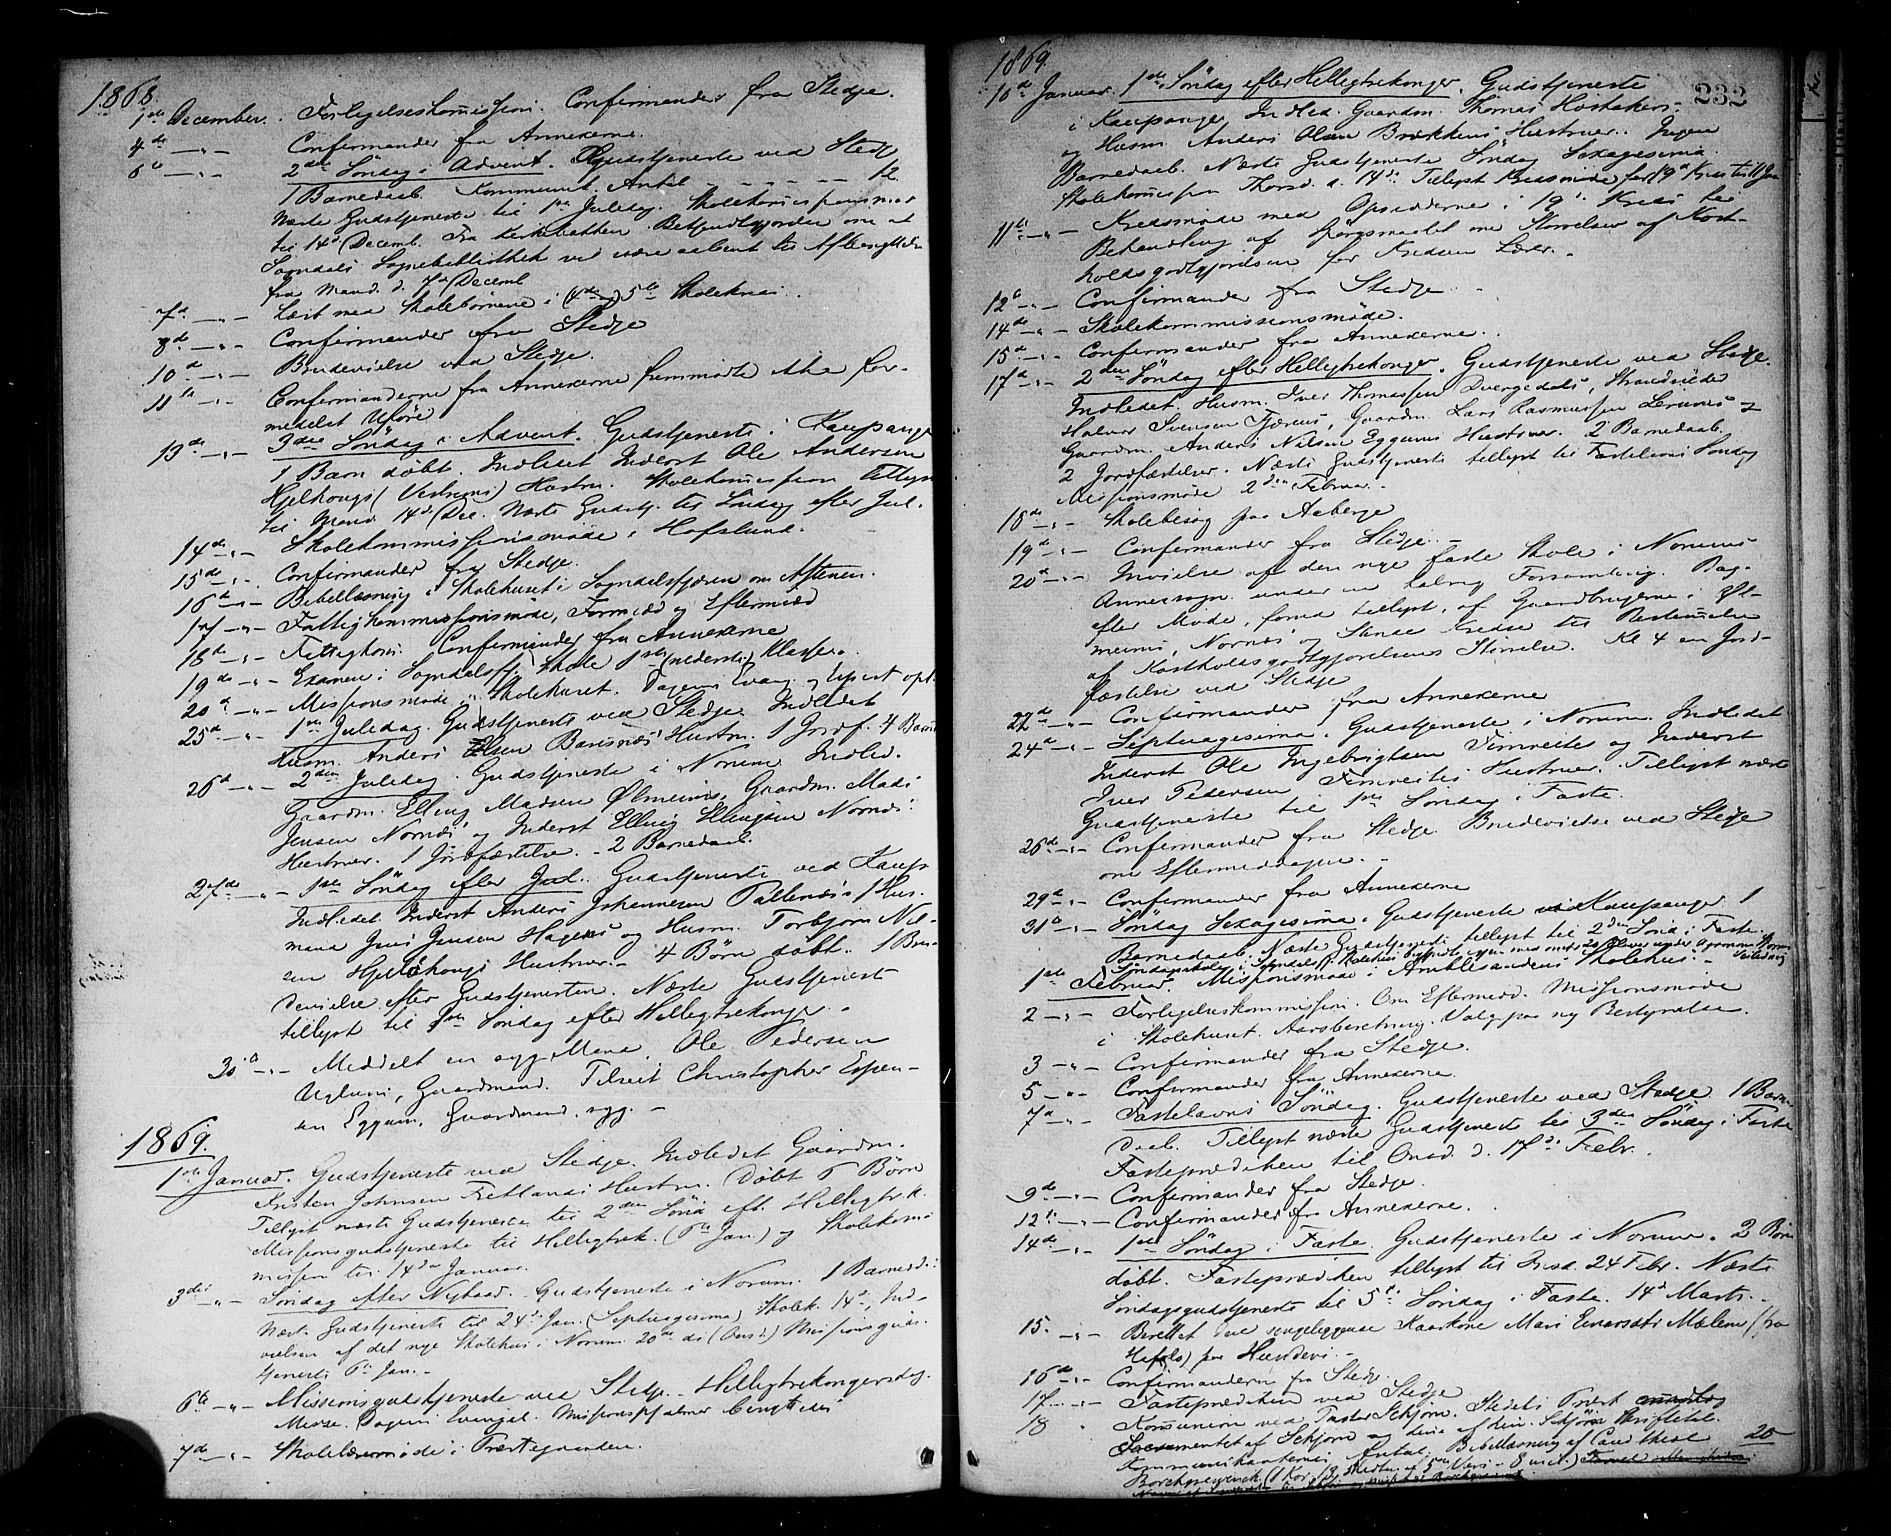 1868.
1ste December. Forligelseskommission. Confirmander fra Stedje.
4de — „ — Confirmander fra Annexerne.
6te — „ — 2den Söndag i Advent. Gudstjeneste ved Stedje
1 Barnedaab. Kommunik. Antal — — — — — — 12
Næste Gudstjeneste til 1ste Juledag. Skolekommissionsmøde
til 14de Decemb. Fra
Sogndals Sognebibliothek vil være aabent til Afbenyttelse
fra Mand. d. 7de Decemb
7de — „ — Læst med Skolebörnene i (4de og) 5te Skolekreds.
8de — „ — Confirmander fra Stedje
10de — „ — Brudevielse ved Stedje.
11te — „ — Confirmanderne fra Annexerne fremmødte ikke for-
medelst Uføre
13de — „ — 3die Söndag i Advent. Gudstjeneste i Kaupanger
1 Barn döbt. Indledet Inderst Ole Andersen
Hjelhougs (Vestrems) Hustru. Skolekommission tillyst
til Mand. 14de Dec. Næste Gudstj. til Söndag efter Jul.
14de — „ — Skolekommissionsmöde i Hofslund.
15de — „ — Confirmander fra Stedje.
16de — „ — Bibellæsning i Skolehuset i Sogndalsfjæren om Aftenen.
17 — „ — Fattigkommissionsmöde, Formidd og Eftermidd
18de — „ — Fattigkom. Confirmander fra Annexerne
19de — „ — Examen i Sogndalsfj. Skole 1ste (nederste) Klasse.
20de — „ — Missionsmöde i Skolehuset. Dagens Evang. og Epist. opl.
25de — „ — 1ste Juledag. Gudstjeneste ved Stedje. Indledet
Husm. Anders Olsen Barsnes Hustru. 1 Jordf. 4 Barned.
26de — „ — 2den Juledag. Gudstjeneste i Norum. Indled.
Gaardm. Elling Madsen Ølmeims, Gaardm. Mads
Jensen Nornæs og Inderst Elling Ellingsen Nornæs
Hustruer. 1 Jordfæstelse. - 2 Barnedaab.
27de — „ — 1ste Söndag efter Jul. Gudstjeneste ved Kaup.
Indledet Inderst Anders Johannesen Pallenæs, Hus-
mand Jens Jensen Hagens og Husm. Torbjörn Nil-
sen Hjelhougs Hustruer. - 4 Börn döbt. 1 Bru-
devielse efter Gudstjenesten. Næste Gudstjeneste
tillyst til 1ste Söndag efter Helligtrekonger. -
30te — „ — Meddelt en syg Mand, Ole Pedersen
Uglum, Gaardmand. Tilseet Christopher Espen-
sen Eggum, Gaardmand, syg. —
1869.
1ste Januar. Gudstjeneste ved Stedje. Indledet Gaardm.
Kristen Johnsen Fretlands Hustru. Döbt 6 Börn
Tillyst næste Gudstjeneste til 2den Sönd. eft. Helligtrek.
Missionsgudstjeneste til Helligtrek. (6te Jan.) og Skolekom-
mission til 14de Januar.
3die — „ — Söndag efter Nytaar. Gudstjeneste i Norum. 1 Barnedaab
Næste Gudstjeneste til 24de Jan. (Septuagesima) Skolek. 14de, Ind-
vielsen af det nye Skolehus i Norum 20de ds (Onsd.) Missionsguds-
tjeneste 6te Jan. -
6te — „ — Missionsgudstjeneste ved Stedje. - Helligtrekongersdag.
Messe. Dagens Evangel. Missionspsalmer benyttedes
7de — „ — Skolelærermöde i Præstegaarden.
1869.
232
10de Januar. 1ste Söndag efter Helligtrekonger. Gudstjeneste
i Kaupanger. Indled. Gaardm. Thomas
og Husm. Anders Olsen Brækkens Hustruer. Ingen
Barnedaab. Næste Gudstjeneste Söndag Sexagesima
Skolekommission Thorsd. d. 14de. Tillyst Kredsmöde for 19de Kreds til 11 Jan
11te — „ — Kredsmöde med Opsidderne i 19de Kreds til
Behandling af Spörgsmaalet om Störrelsen af Kost-
holdsgodtgjørelsen for Kredsens Lærer. -
12te — „ — Confirmander fra Stedje.
14de — „ — Skolekommissionsmöde.
15de — „ — Confirmander fra Annexerne.
17de — „ — 2den Söndag efter Helligtrekonger. Gudstjeneste ved Stedje.
Indledet Husm. Iver Thomassen Dvergedals, Strandsidder
Halvor Svensen Fjærens, Gaardm. Lars Rasmussen Lerums og
Gaardm. Anders Nilsen Eggums Hustruer. 2 Barnedaab.
2 Jordfæstelser. Næste Gudstjeneste tillyst til Fastelavns Söndag
Missionsmöde 2den Februar. -
18de — „ — Skolebesög paa Aaberge
19de — „ — Confirmander fra Stedje. -
20de — „ — Indvielse af den nye faste Skole i Norums
Annexsogn under en talrig Forsamling. Der-
efter Möde, forud tillyst, af Gaardbrugerne i Øl-
meims, Nornæs og Kredse til Bestemmelse
af Kostholdsgodtgjørelsens Störrelse. Kl 4 en Jord-
fæstelse ved Stedje
22de — „ — Confirmander fra Annexerne
24de — „ — Septuagesima. Gudstjeneste i Norum. Indledet
Inderst Ole Ingebrigtsen Fimreites og Inderst
Iver Pedersen Fimreites Hustruer. Tillyst næste
Gudstjeneste til 1ste Söndag i Faste.
26de — „ — Confirmander fra Stedje. Brudevielse ved Stedje
om Eftermiddagen. -
29de — „ — Confirmander fra Annexerne
31te — „ — Söndag Sexagesima. Gudstjeneste i Kaupanger 1
Barnedaab. Næste Gudstjeneste tillyst til 2den Sönd. i Faste.
Söndagsskolen i Sogndalsfj. Skolehus
1ste Februar. Missionsmöde i Amblesandens Skolehus. -
2 — „ — Forligelseskommission. Om Eftermidd. Missionsmöde
i Skolehuset. Aarsberetning. Valg paa ny Bestyrelse.
3 — „ — Confirmander fra Stedje.
5 — „ — Confirmander fra Annexerne.
7de — „ — Fastelavns Söndag. Gudstjeneste ved Stedje 1 Barne-
daab. Tillyst næste Gudstjeneste til 3die Söndag i Faste
Fasteprædiken til Onsd. d. 17de Febr.
9de — „ — Confirmander fra Stedje.
12te — „ — Confirmander fra Annexerne.
14de — „ — 1ste Söndag i Faste. Gudstjeneste i Norum. 2 Börn
döbt. Fasteprædiken tillyst til Onsd. 24 Febr. Næste
Söndagsgudstjeneste til 5te Söndag i Faste. 14de Marts. -
15. — „ — Berettet den sengeliggende Kaarkone Mari Einersdtr Mælum (fra
Hafslo) paa Hundere. -
16de — „ — Confirmanderne fra Stedje.
17 — „ — Fasteprædiken ved Stedje
18 „ Kommunion ved Pastor Schjörn. Stedets Præst
Sacramentet af Schjörn og denne af den. Schjörn Skriftetale.
Kommunikanternes Antal. Bibellæsning af Cand. theol. 20
Borchgrevinck